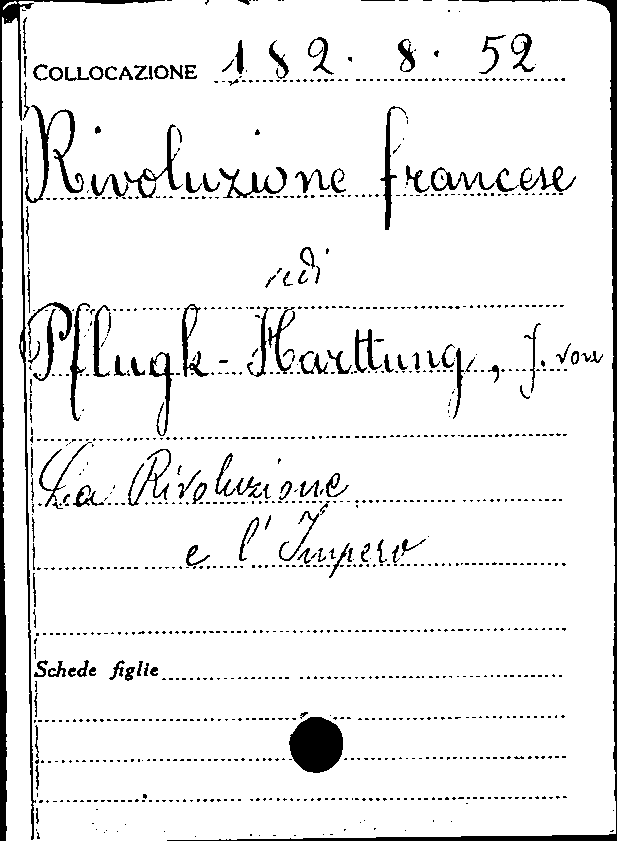 COLLOCAZIONE 182. 8. 52
Rivoluzione francese
vedi
Pflugk-Harttung, J. von
La Rivoluzione
e l'Impero
Schede figlie